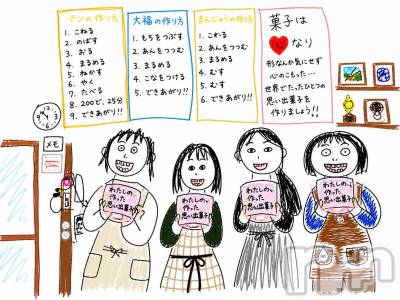 パンの作り方
1. こねる
2. のばす
3. おる
4. まるめる
5. ねかす
6. やく
7. たべる
8. 200ど、25分
9. できあがり!!
大福の作り方
1. もちをつぶす
2. あんをつつむ
3. まるめる
4. こなをつける
5. できあがり!!
まんじゅうの作り方
1. こねる
2. あんをつつむ
3. まるめる
4. むす
5. むす
6. できあがり!!
菓子は
心なり
形なんか気にせず
心のこもった…
世界でたったひとつの
思い出菓子を
作りましょう!!
メモ
わたしの、
作った
思い出菓子
わたしの、
作った
思い出菓子
わたしの、
作った
思い出菓子
わたしの、
作った
思い出菓子